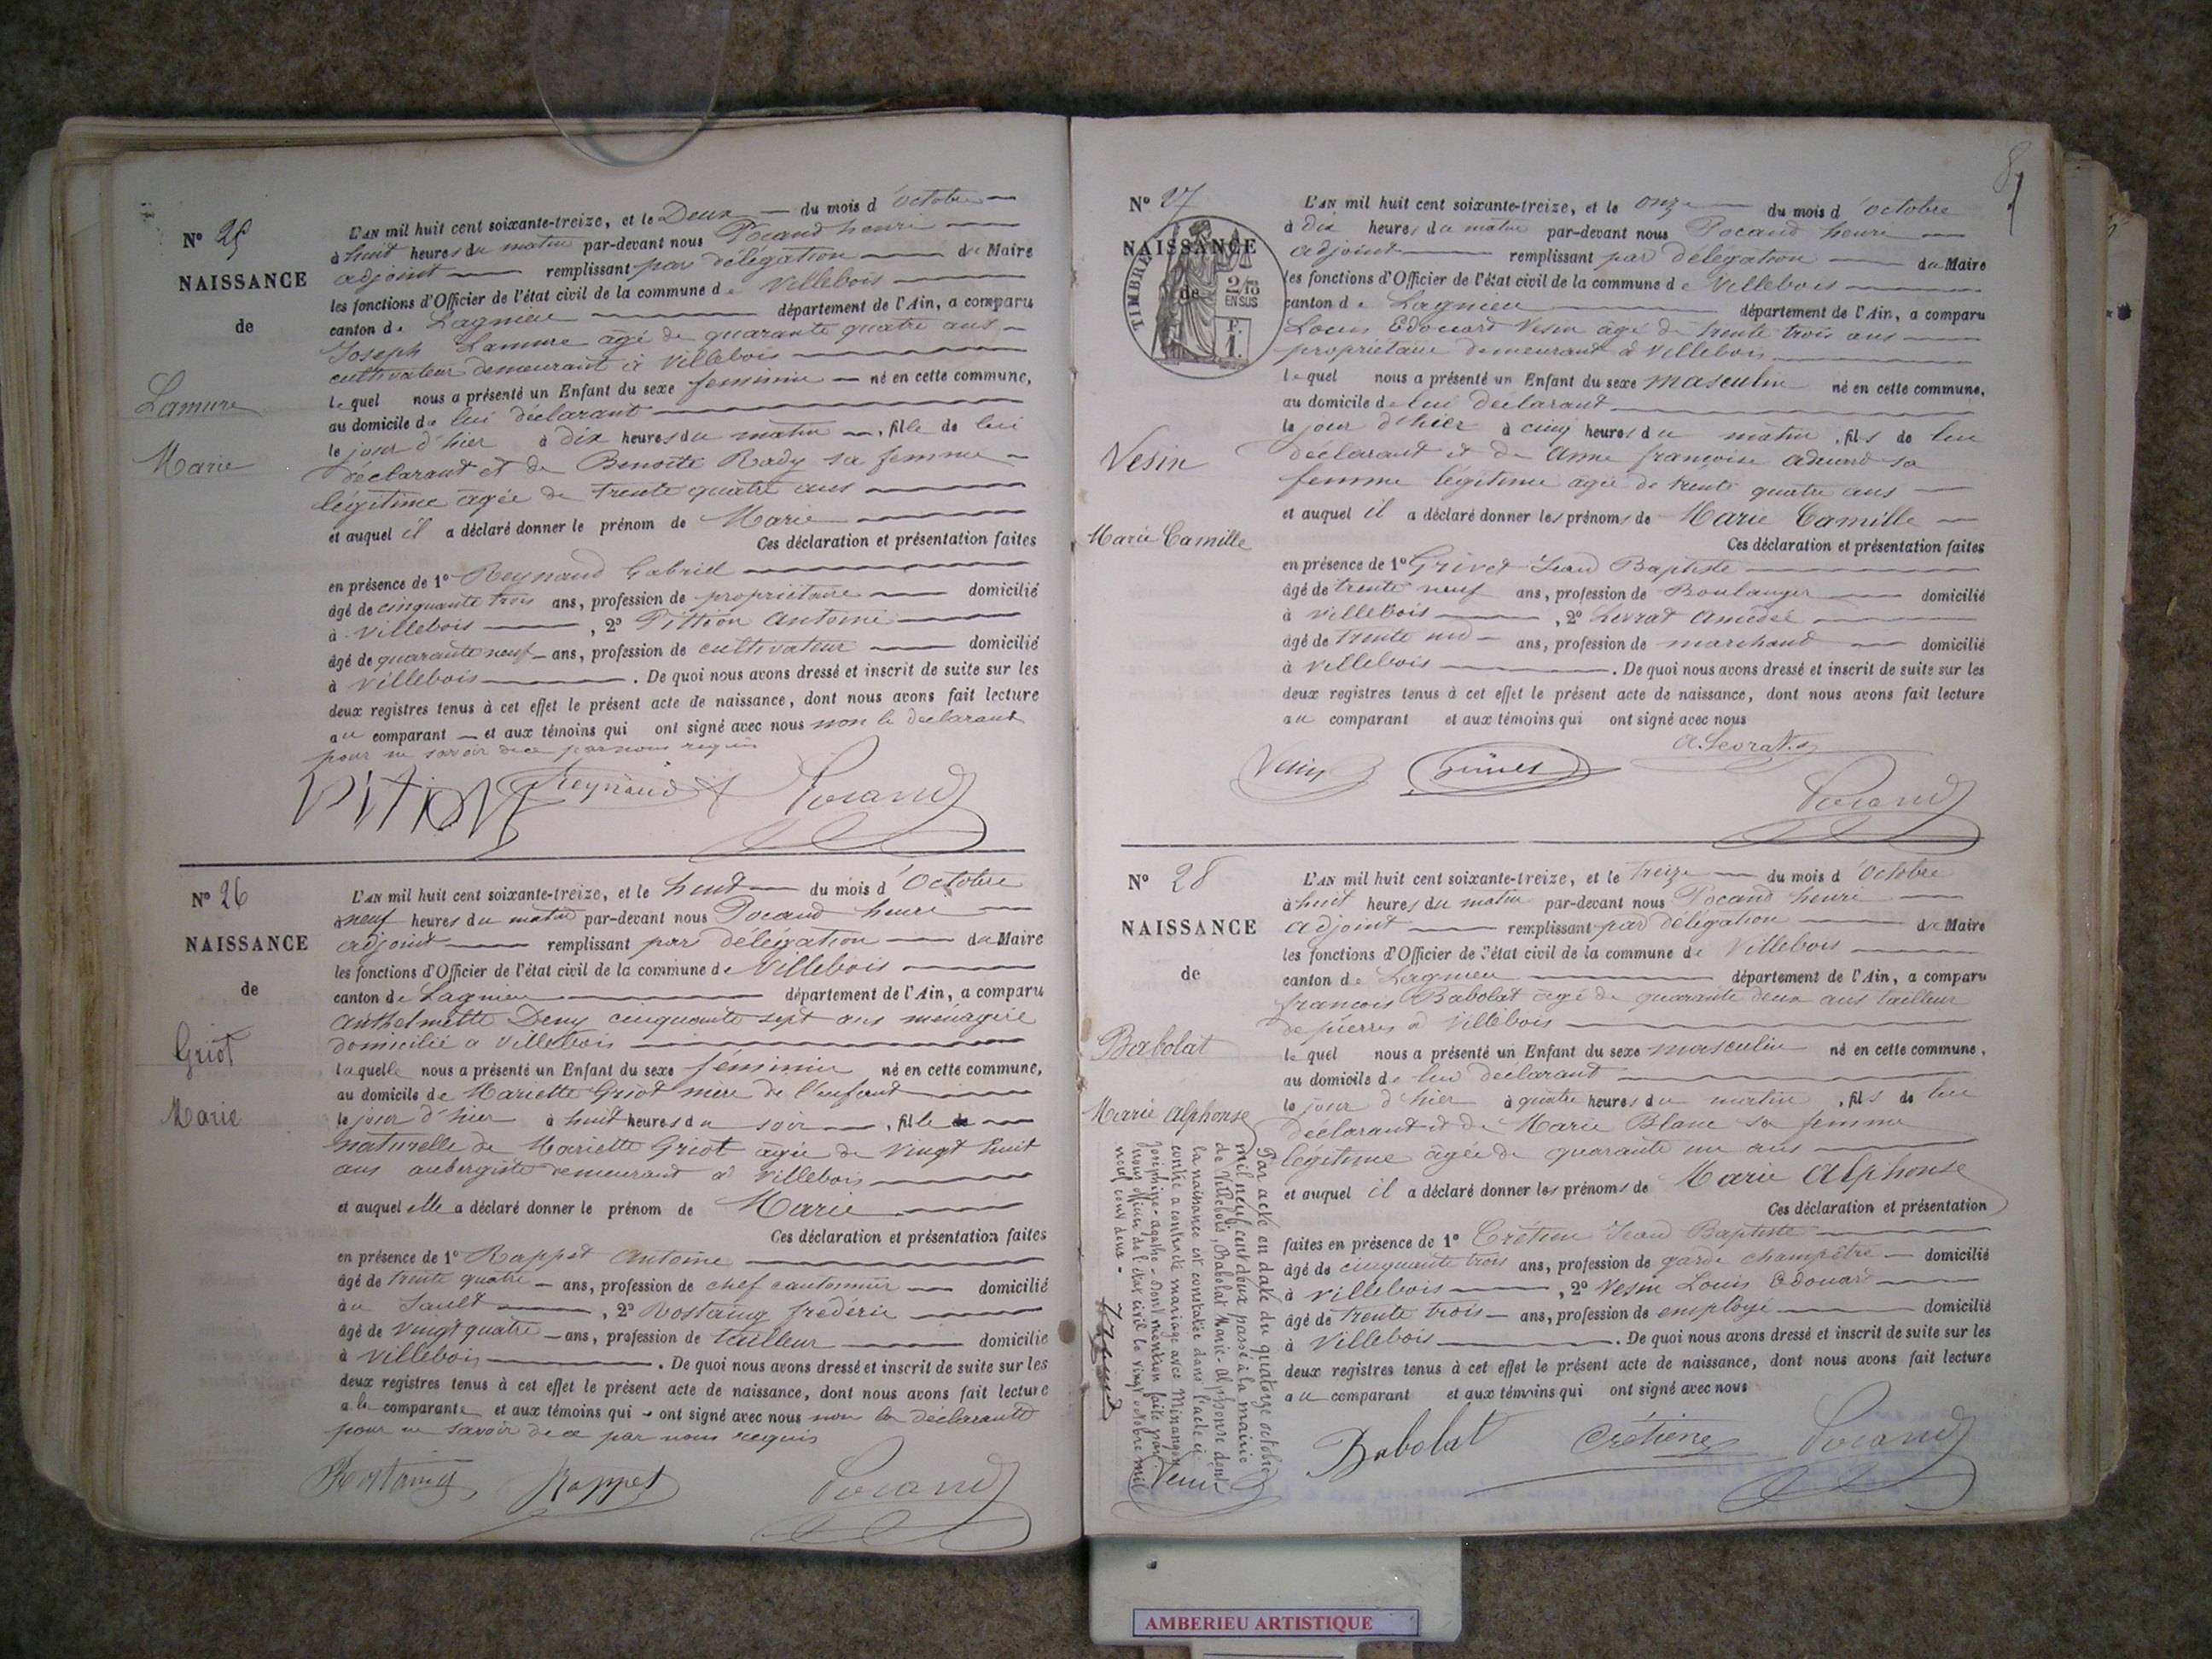 Nº 25
NAISSANCE
de
Lamure
Marie
L'AN mil huit cent soixante-treize, et le Deux du mois d'octobre
à huit heures du matin par-devant nous Pocand henri
adjoint remplissant par délégation du Maire
les fonctions d'Officier de l'état civil de la commune de Villebois
canton de Lagnieu département de l'Ain, a comparu
Joseph Lamure âgé de quarante quatre ans
cultivateur demeurant à Villebois
lequel nous a présenté un Enfant du sexe féminin né en cette commune,
au domicile de lui déclarant
le jour d'hier à dix heures du matin, fille de lui
déclarant et de Benoite Rady sa femme
légitime âgée de trente quatre ans
et auquel il a déclaré donner le prénom de Marie
Ces déclaration et présentation faites
en présence de 1º Reynaud Gabriel
âgé de cinquante trois ans, profession de propriétaire domicilié
à Villebois, 2º Pittion Antoine
âgé de quarante neuf ans, profession de cultivateur domicilié
à Villebois. De quoi nous avons dressé et inscrit de suite sur les
deux registres tenus à cet effet le présent acte de naissance, dont nous avons fait lecture
au comparant et aux témoins qui ont signé avec nous non le déclarant
pour ne savoir de ce par nous requis
PITION Reynaud Pocand
Nº 26
NAISSANCE
de
Griot
Marie
L'AN mil huit cent soixante-treize, et le huit du mois d'Octobre
à neuf heures du matin par-devant nous Pocand henri
adjoint remplissant par délégation du Maire
les fonctions d'Officier de l'état civil de la commune de Villebois
canton de Lagnieu département de l'Ain, a comparu
Anthelmette Deny cinquante sept ans ménagère
domicilié à Villebois
laquelle nous a présenté un Enfant du sexe féminin né en cette commune,
au domicile de Mariette Griot mère de l'enfant
le jour d'hier à huit heures du soir, fille
naturelle de Mariette Griot âgée de vingt huit
ans aubergiste demeurant à Villebois
et auquel elle a déclaré donner le prénom de Marie
Ces déclaration et présentation faites
en présence de 1º Rappet Antoine
âgé de trente quatre ans, profession de chef cantonnier domicilié
au Sault, 2º Rostaing frédéric
âgé de vingt quatre ans, profession de tailleur domicilié
à Villebois. De quoi nous avons dressé et inscrit de suite sur les
deux registres tenus à cet effet le présent acte de naissance, dont nous avons fait lecture
a la comparante et aux témoins qui ont signé avec nous non la déclarante
pour ne savoir de ce par nous requis
Rostaing Rappet Pocand
8
Nº 27
NAISSANCE
de
TIMBRE
2/10
EN SUS
F.
1.
Vesin
Marie Camille
L'AN mil huit cent soixante-treize, et le onze du mois d'octobre
à dix heures du matin par-devant nous Pocand henri
adjoint remplissant par délégation du Maire
les fonctions d'Officier de l'état civil de la commune de Villebois
canton de Lagnieu département de l'Ain, a comparu
Louis Edouard Vesin âgé de trente trois ans
propriétaire demeurant à Villebois
lequel nous a présenté un Enfant du sexe masculin né en cette commune,
au domicile de lui déclarant
le jour d'hier à cinq heures du matin, fils de lui
déclarant et de Anne françoise sa
femme légitime âgée de trente quatre ans
et auquel il a déclaré donner les prénoms de Marie Camille
Ces déclaration et présentation faites
en présence de 1º Grivet Jean Baptiste
âgé de trente neuf ans, profession de Boulanger domicilié
à Villebois, 2º Levrat Amédée
âgé de trente un ans, profession de marchand domicilié
à Villebois. De quoi nous avons dressé et inscrit de suite sur les
deux registres tenus à cet effet le présent acte de naissance, dont nous avons fait lecture
au comparant et aux témoins qui ont signé avec nous
A. Levrat
Vesin Grivet
Pocand
Nº 28
NAISSANCE
de
Babolat
Marie Alphonse
L'AN mil huit cent soixante-treize, et le treize du mois d'octobre
à huit heures du matin par-devant nous Pocand henri
adjoint remplissant par délégation du Maire
les fonctions d'Officier de l'état civil de la commune de Villebois
canton de Lagnieu département de l'Ain, a comparu
françois Babolat âgé de quarante deux ans tailleur
de pierres à Villebois
lequel nous a présenté un Enfant du sexe masculin né en cette commune,
au domicile de lui déclarant
le jour d'hier à quatre heures du matin, fils de lui
déclarant et de Marie Blanc sa femme
légitime âgée de quarante un ans
et auquel il a déclaré donner les prénoms de Marie Alphonse
Ces déclaration et présentation
faites en présence de 1º Crétien Jean Baptiste
âgé de cinquante trois ans, profession de garde champêtre domicilié
à Villebois, 2º Vesin Louis Edouard
âgé de trente trois ans, profession de employé domicilié
à Villebois. De quoi nous avons dressé et inscrit de suite sur les
deux registres tenus à cet effet le présent acte de naissance, dont nous avons fait lecture
au comparant et aux témoins qui ont signé avec nous
Babolat Crétien Pocand
Vesin
Par acte en date du quatorze octobre
mil neuf cent deux passé à la mairie
de Villebois, Babolat Marie-Alphonse dont
la naissance est constatée dans l'acte ci
contre a contracté mariage avec Minangoy
Joséphine-Agathe. Dont mention faite par
nous officier de l'état civil le vingt octobre mil
neuf cent deux.
AMBERIEU ARTISTIQUE